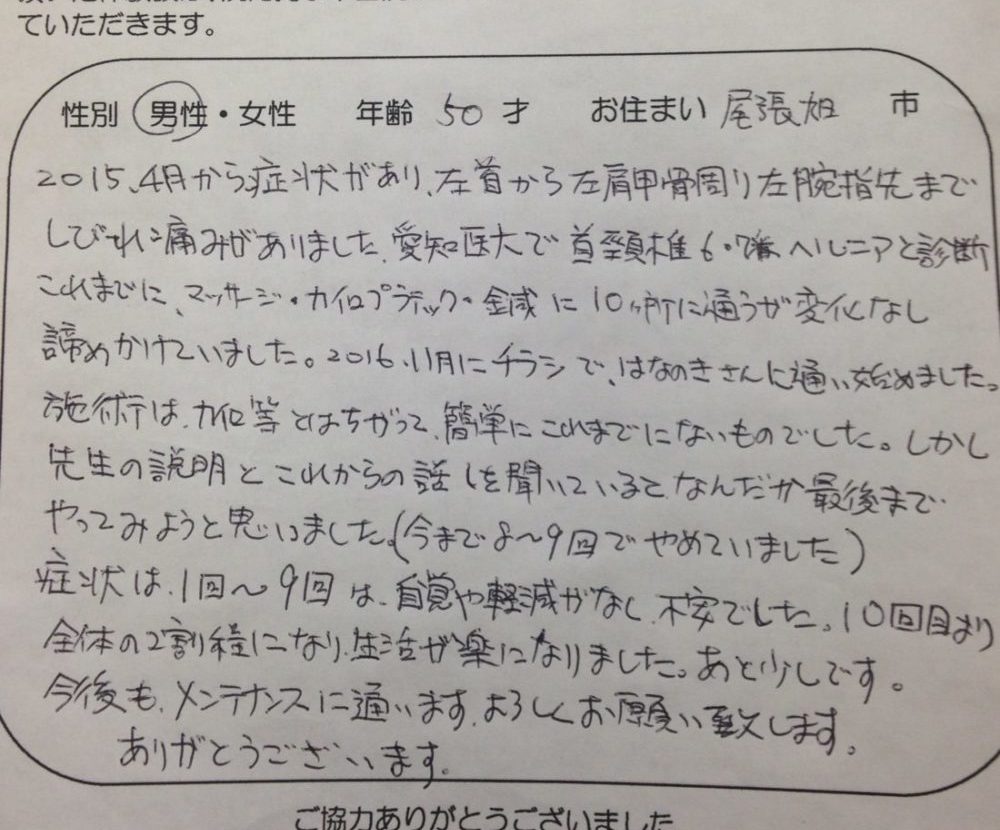 ていただきます。
性別 男性・女性 年齢 50 才 お住まい 尾張旭 市
2015、4月から症状があり、左首から左肩甲骨周り左腕指先まで
しびれに痛みがありました、愛知医大で首頚椎6・7番ヘルニアと診断
これまでに、マッサージ・カイロプラティック・金鍼に10ヶ所に通うが変化なし
諦めかけていました。2016、11月にチラシで、はなのきさんに通い始めました。
施術は、カイロ等とはちがって、簡単にこれまでにないものでした。しかし
先生の説明とこれからの話しを聞いていると、なんだか最後まで
やってみようと思いました。(今まで8〜9回でやめていました)
症状は、1回〜9回は、自覚や軽減がなし、不安でした。10回目より
全体の2割程になり、生活が楽になりました。あと少しです。
今後も、メンテナンスに通います、よろしくお願い致します。
ありがとうございます。
ご協力ありがとうございました